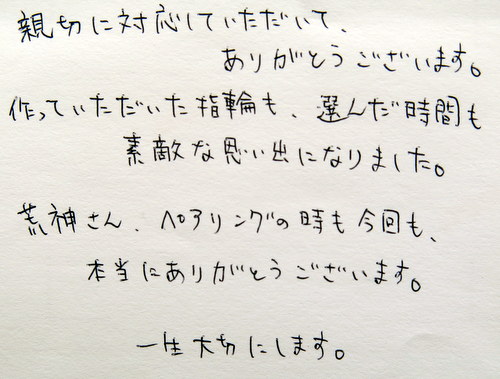 親切に対応していただいて、
ありがとうございます。
作っていただいた指輪も、選んだ時間も
素敵な思い出になりました。
荒神さん、ペアリングの時も今回も、
本当にありがとうございます。
一生大切にします。